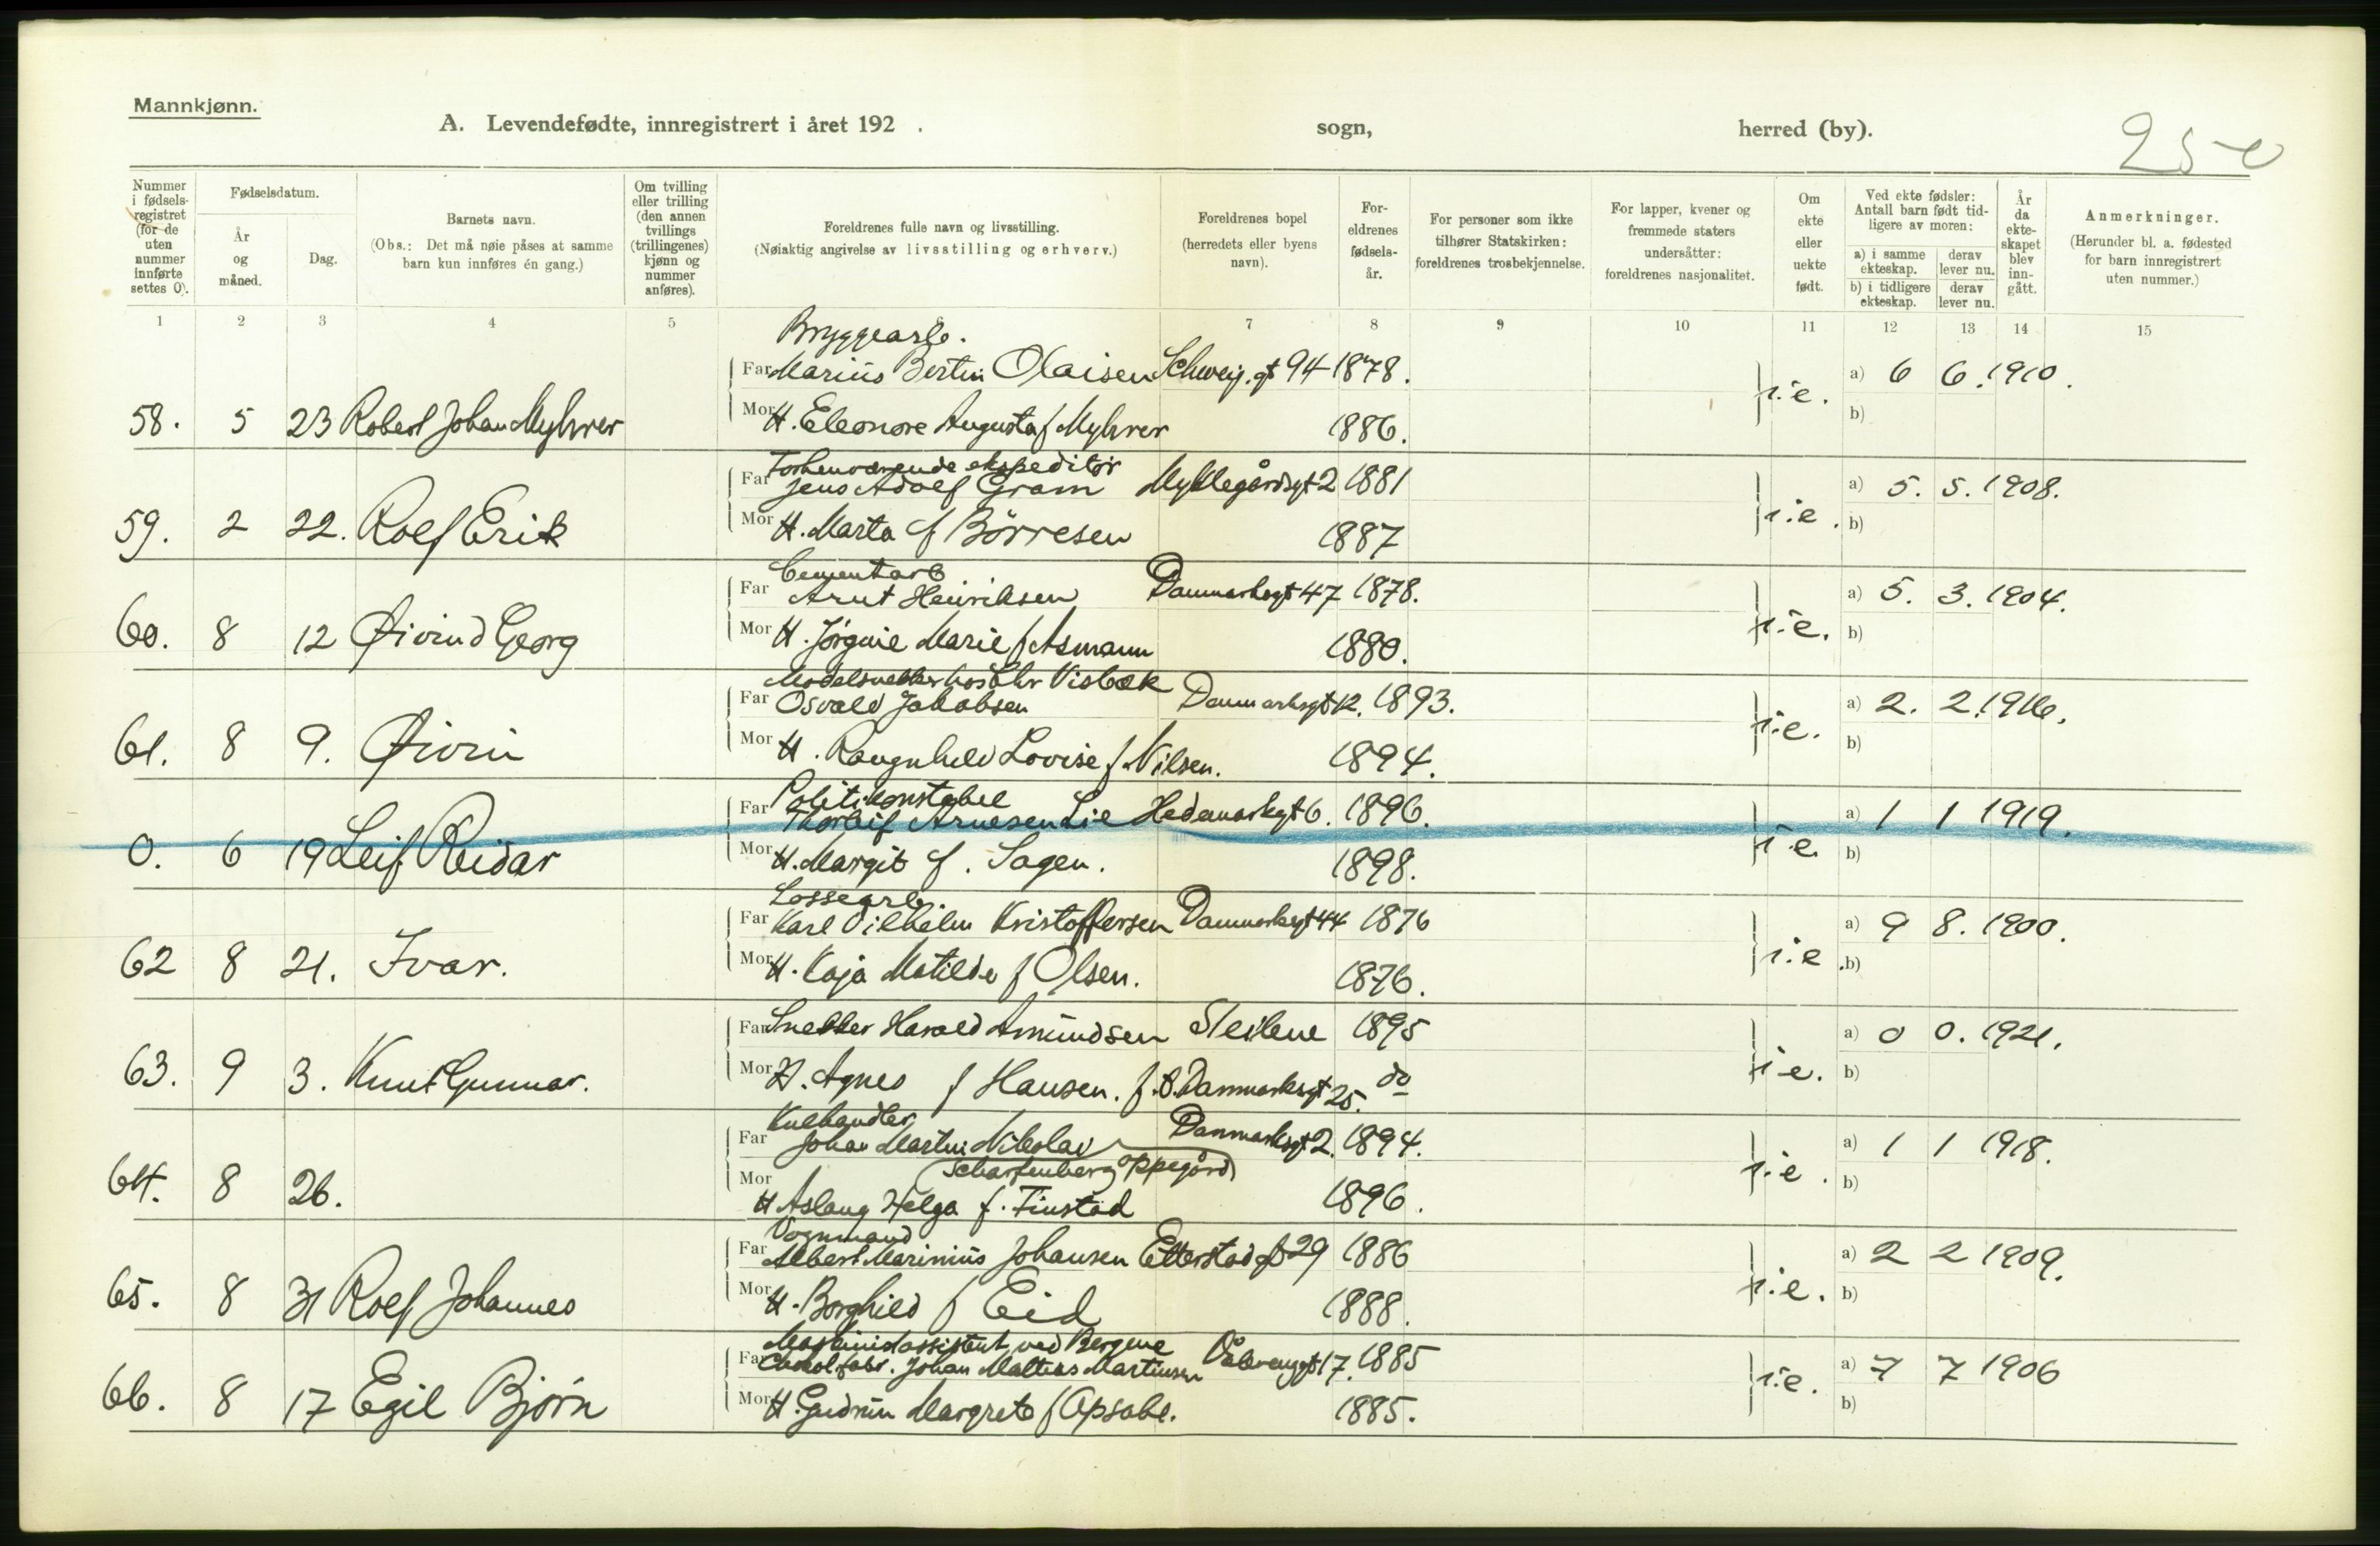 Mannkjønn.
A. Levendefødte, innregistrert i året 192 .
sogn,
herred (by).
25
Nummer i fødsels-registret (for de uten nummer innførte settes 0).
Fødselsdatum.
År og måned.
Dag.
Barnets navn.
(Obs.: Det må nøie påses at samme barn kun innføres én gang.)
Om tvilling eller trilling (den annen tvillings (trillingenes) kjønn og nummer anføres).
Foreldrenes fulle navn og livsstilling.
(Nøiaktig angivelse av livsstilling og erhverv.)
Foreldrenes bopel (herredets eller byens navn).
For-eldrenes fødsels-år.
For personer som ikke tilhører Statskirken: foreldrenes trosbekjennelse.
For lapper, kvener og fremmede staters undersåtter: foreldrenes nasjonalitet.
Om ekte eller uekte født.
Ved ekte fødsler: Antall barn født tid-ligere av moren:
a) i samme ekteskap.
derav lever nu.
b) i tidligere ekteskap.
derav lever nu.
År da ekte-skapet blev inn-gått.
Anmerkninger.
(Herunder bl. a. fødested for barn innregistrert uten nummer.)
1 2 3 4 5 6 7 8 9 10 11 12 13 14 15
Bryggearb.
Far Marius Bertin Olaisen Schweig.gt 94 1878. a) 6 6. 1910.
58. 5 23 Robert Johan Myhrer Mor H. Eleonore Augusta f Myhrer 1886. i.e. b)
Forhenværende ekspeditør
Far Jens Adolf Gram Myllegårdsgt 2 1881 a) 5. 5. 1908.
59. 2 22. Rolf Erik Mor H. Marta f Börresen 1887 i.e. b)
Cementarb
Far Arnt Henriksen Danmarksgt 47 1878. a) 5. 3. 1904.
60. 8 12 Øivind Georg Mor H. Jørgine Marie f Asmann 1880. i.e. b)
Modelsnekker hos Chr Visbæk
Far Osvald Jakobsen Danmarksgt 12. 1893. a) 2. 2. 1916.
61. 8 9. Øivin Mor H. Raugnhild Lovise f. Nilsen. 1894. i.e. b)
Politikonstabel
Far Thorleif Arnesen Lie Hedemarksgt 6. 1896. a) 1 1 1919.
0. 6 19 Leif Reidar Mor H. Margit f. Sagen. 1898. i.e. b)
Lossearb
Far Karl Vilhelm Kristoffersen Danmarksgt 44 1876 a) 9 8. 1900.
62 8 21. Ivar. Mor H. Kaja Matilde f Olsen. 1876. i.e. b)
Far Snekker Harald Amundsen Steilene 1895 a) 0 0. 1921.
63. 9 3. Knut Gunnar. Mor H. Agnes f Hansen. f.s. Danmarksgt 25. do i.e. b)
Kulhandler
Far Johan Martin Nikolai Danmarksgt 2. 1894. a) 1 1 1918.
Scharfenberg Oppegård
64. 8 26. Mor H Aslaug Helga f. Finstad 1896. i.e. b)
Vognmand
Far Albert Marinius Johansen Etterstadgt 29 1886 a) 2 2 1909.
65. 8 31 Rolf Johannes Mor H. Borghild f Eid 1888. i.e. b)
Maskinistassistent ved Bergene
Far Chokol.fabr. Johan Mattias Martinsen Vålerenggt 17. 1885 a) 7 7 1906
66. 8 17 Egil Bjørn Mor H. Gudrun Margrete f Opsahl. 1885. i.e. b)